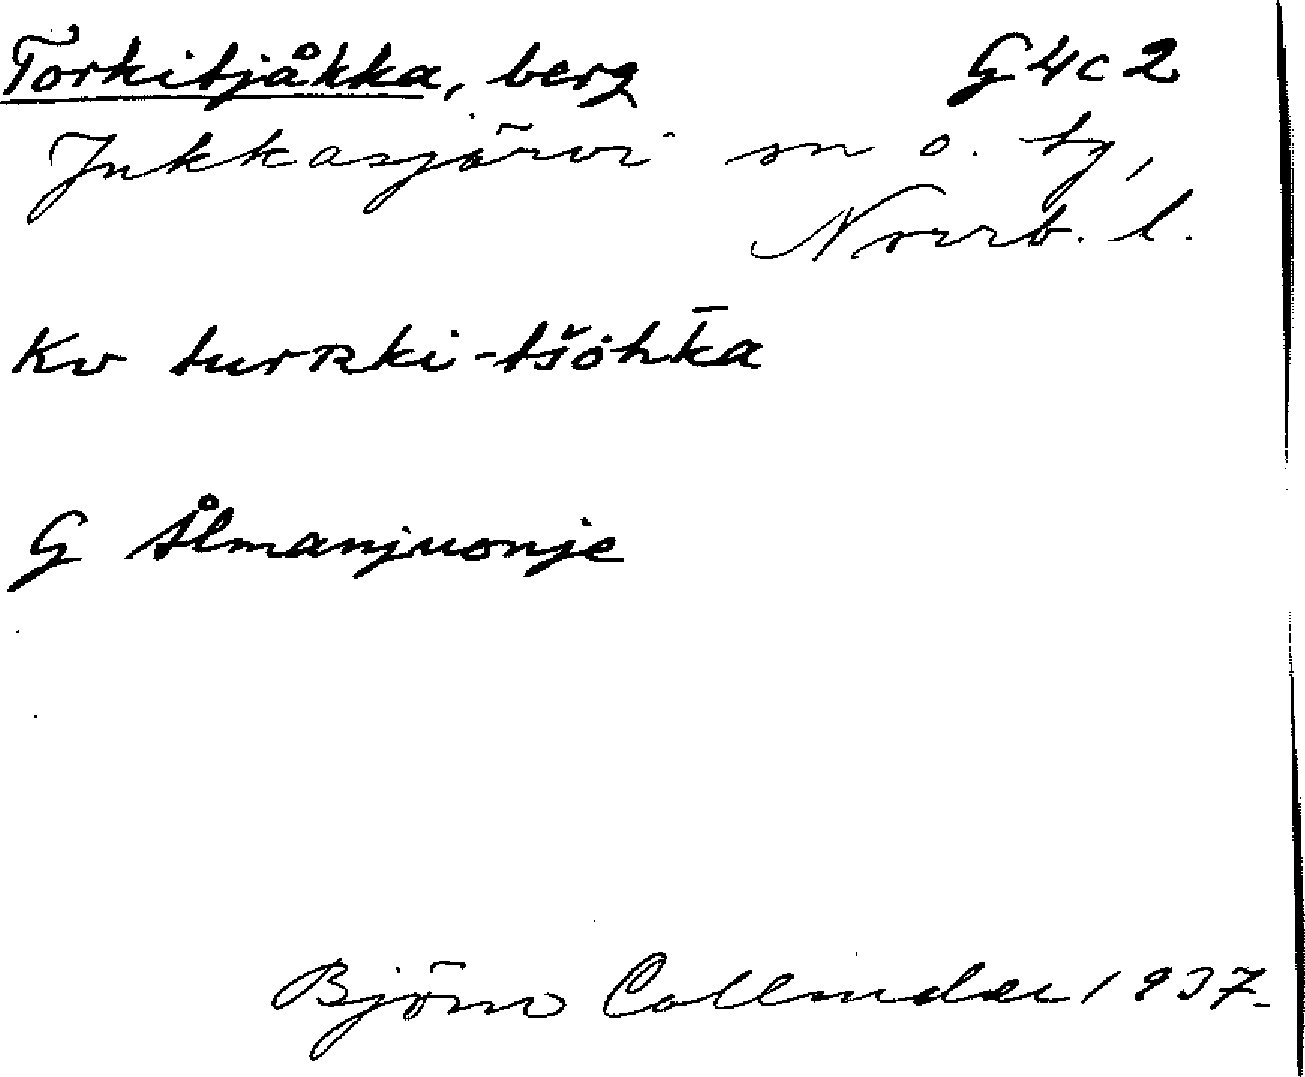 Torkitjåkka, berg G4c2
Jukkasjärvi sn o. tg,
Norrb. l.
Kv turʀki-tšȯhk̄a
G Ålmanjuonje
Björn Collinder 1937